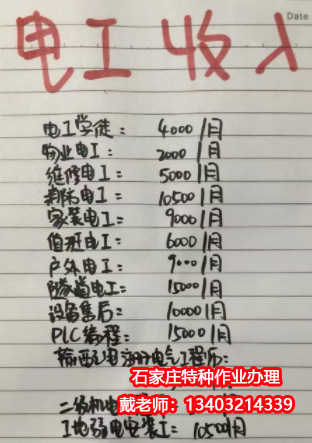 Date
电工收入
电工学徒： 4000/月
物业电工： 2000/月
维修电工： 5000/月
电工： 10500/月
家装电工： 9000/月
值班电工： 6000/月
户外电工： 9000/月
隧道电工： 15000/月
设备售后： 10000/月
PLC编程： 15000/月
输配电 注册电气工程师：
石家庄特种作业办理
戴老师：13403214339
工地弱电安装工： 10500/月